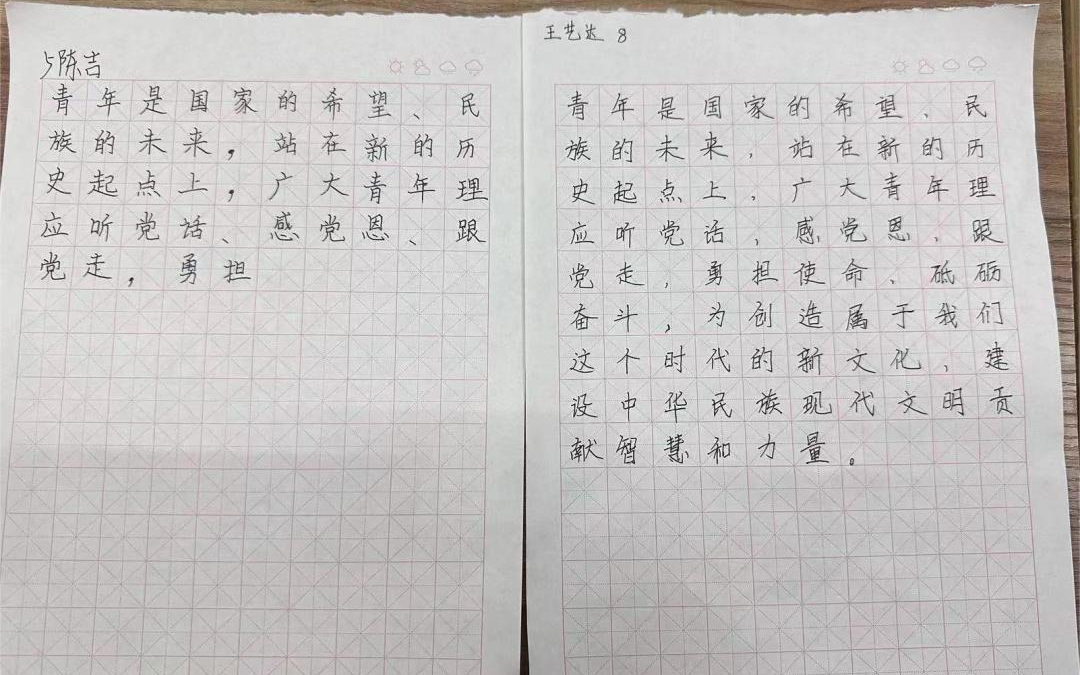 5陈吉
青年是国家的希望、民
族的未来，站在新的历
史起点上，广大青年理
应听党话、感党恩、跟
党走，勇担
王艺达 8
青年是国家的希望、民
族的未来，站在新的历
史起点上，广大青年理
应听党话，感党恩、跟
党走，勇担使命、砥砺
奋斗，为创造属于我们
这个时代的新文化，建
设中华民族现代文明贡
献智慧和力量。